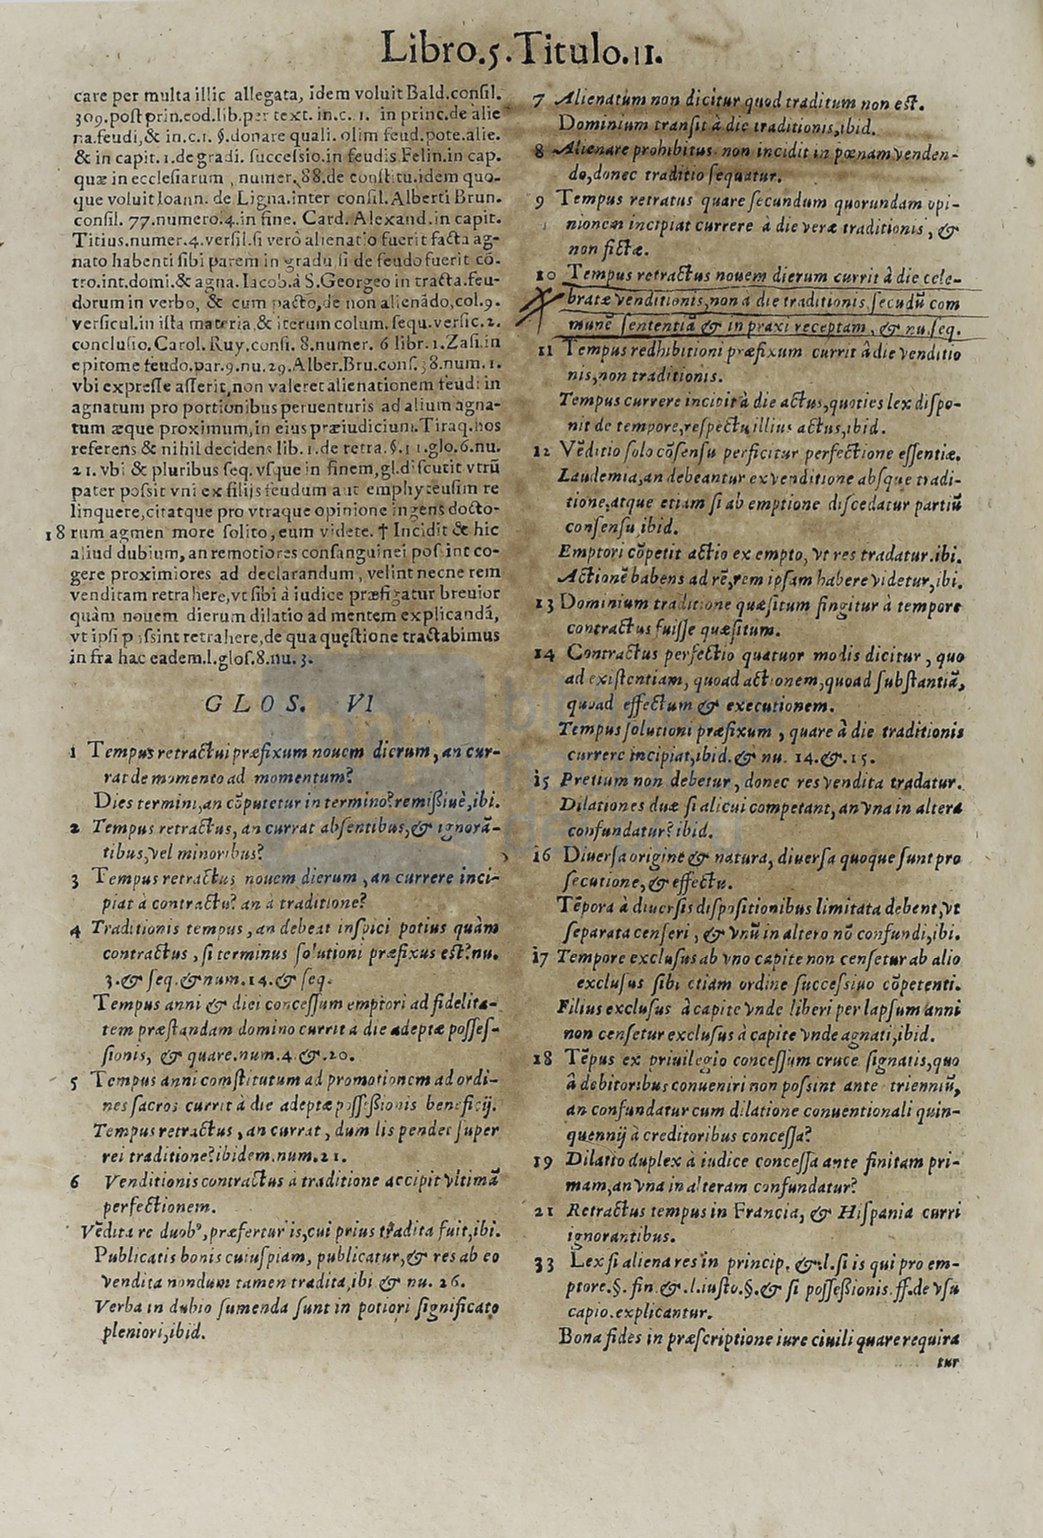 Libro.5.Titulo.11.
care per multa illic allegata, idem voluit Bald.consil.
309.post prin.eod.lib.per text. in.c. 1. in princ.de alie
na.feudi,& in.c.1. §.donare quali. olim feud.pote.alie.
& in capit.1.de gradi. successio.in feudis Felin.in cap.
quæ in ecclesiarum , numer.88.de constitu.idem quo-
que voluit Ioann. de Ligna.inter consil. Alberti Brun.
consil. 77.numero.4.in fine. Card. Alexand.in capit.
Titius.numer.4.versil.si verò alienatio fuerit facta ag-
nato habenti sibi parem in gradu si de feudo fuerit cō-
tro.int.domi.& agna. Iacob.à S.Georgeo in tracta.feu-
dorum in verbo, & cum pacto,de non alienādo,col.9.
versicul.in ista materia,& iterum colum. sequ.versic.2.
conclusio. Carol. Ruy.consi. 8.numer. 6 libr.1.Zasi.in
epitome feudo.par.9.nu.29.Alber.Bru.cons.38.num.1.
vbi expresse asserit,non valeret alienationem feudi in
agnatum pro portionibus peruenturis ad alium agna-
tum æque proximum,in eius præiudicium.Tiraq.hos
referens & nihil decidens lib.1.de retra.§.11.glo.6.nu.
21.vbi & pluribus seq. vsque in finem,gl.discutit vtrū
pater possit vni ex filijs feudum aut emphyteusim re
linquere,citatque pro vtraque opinione ingens docto-
18 rum agmen more solito, eum videte. † Incidit & hic
aliud dubium, an remotiores consanguinei possint co-
gere proximiores ad declarandum, velint necne rem
venditam retrahere,vt sibi à iudice præfigatur breuior
quàm nouem dierum dilatio ad mentem explicandā,
vt ipsi possint retrahere,de qua quęstione tractabimus
infra hac eadem.l.glos.8.nu. 3.
GLOS. VI
1 Tempus retractui præfixum nouem dierum, an cur-
rat de momento ad momentum?
Dies termini,an cōputetur in termino?remissiuè,ibi.
2 Tempus retractus, an currat absentibus,& ignorā-
tibus,vel minoribus?
3 Tempus retractus nouem dierum , an currere inci-
piat à contractu? an à traditione?
4 Traditionis tempus , an debeat inspici potius quàm
contractus , si terminus solutioni præfixus est?nu.
3.& seq.& num.14.& seq.
Tempus anni & diei concessum emptori ad fidelita-
tem præstandam domino currit à die adeptæ posses-
sionis, & quare.num.4.&.20.
5 Tempus anni comstitutum ad promotionem ad ordi-
nes sacros currit à die adeptæ possessionis beneficij.
Tempus retractus , an currat , dum lis pendet super
rei traditione?ibidem.num.21.
6 Venditionis contractus à traditione accipit vltimā
perfectionem.
Vēdita re duob⁹,præfertur is,cui prius tradita fuit,ibi.
Publicatis bonis cuiuspiam, publicatur,& res ab eo
vendita nondum tamen tradita,ibi & nu. 26.
Verba in dubio sumenda sunt in potiori significato
pleniori,ibid.
7 Alienatum non dicitur quod traditum non est.
Dominium transit à die traditionis,ibid.
8 Alienare prohibitus non incidit in pœnam venden-
do,donec traditio sequatur.
9 Tempus retratus quare secundum quorundam opi-
nionem incipiat currere à die veræ traditionis , &
non fictæ.
10 Tempus retractus nouem dierum currit à die cele-
bratæ venditionis,non à die traditionis,secūdū com
munē sententiā & in praxi receptam, & nu.seq.
11 Tempus redhibitioni præfixum currit à die venditio
nis,non traditionis.
Tempus currere incipit à die actus,quoties lex dispo-
nit de tempore,respectu illius actus,ibid.
12 Vēditio solo cōsensu perficitur perfectione essentiæ.
Laudemia,an debeantur ex venditione absque tradi-
tione,atque etiam si ab emptione discedatur partiū
consensu,ibid.
Emptori cōpetit actio ex empto, vt res tradatur.ibi.
Actionē habens ad rē,rem ipsam habere videtur,ibi.
13 Dominium traditione quæsitum fingitur à tempore
contractus fuisse quæsitum.
14 Contractus perfectio quatuor modis dicitur , quo
ad existentiam, quoad actionem,quoad substantiā,
quoad effectum & executionem.
Tempus solutioni præfixum , quare à die traditionis
currere incipiat,ibid.& nu. 14.&.15.
15 Pretium non debetur, donec res vendita tradatur.
Dilationes duæ si alicui competant, an vna in altera
confundatur? ibid.
16 Diuersa origine & natura, diuersa quoque sunt pro
secutione,& effectu.
Tēpora à diuersis dispositionibus limitata debent,vt
separata censeri , & vnū in altero nō confundi,ibi.
17 Tempore exclusus ab vno capite non censetur ab alio
exclusus sibi etiam ordine successiuo cōpetenti.
Filius exclusus à capite vnde liberi per lapsum anni
non censetur exclusus à capite vnde agnati,ibid.
18 Tēpus ex priuilegio concessum cruce signatis,quo
à debitoribus conueniri non possint ante trienniū,
an confundatur cum dilatione conuentionali quin-
quennij à creditoribus concessa?
19 Dilatio duplex à iudice concessa ante finitam pri-
mam,an vna in alteram confundatur?
21 Retractus tempus in Francia, & Hispania curri
ignorantibus.
33 Lex si aliena res in princip. &.l.si is qui pro em-
ptore.§. fin.&.l.iusto.§.& si possessionis.ff.de vsu
capio.explicantur.
Bona fides in præscriptione iure ciuili quare requira
tur